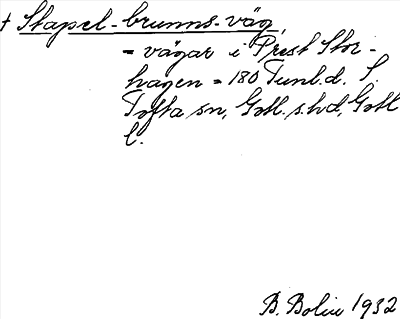 + Stapel-brunns-väg,
= vägar i Prest Stor-
hagen = 180 Tunl.d. S.
Tofta sn, Gotl. s. hd, Gotl
l.
B. Bolin 1932